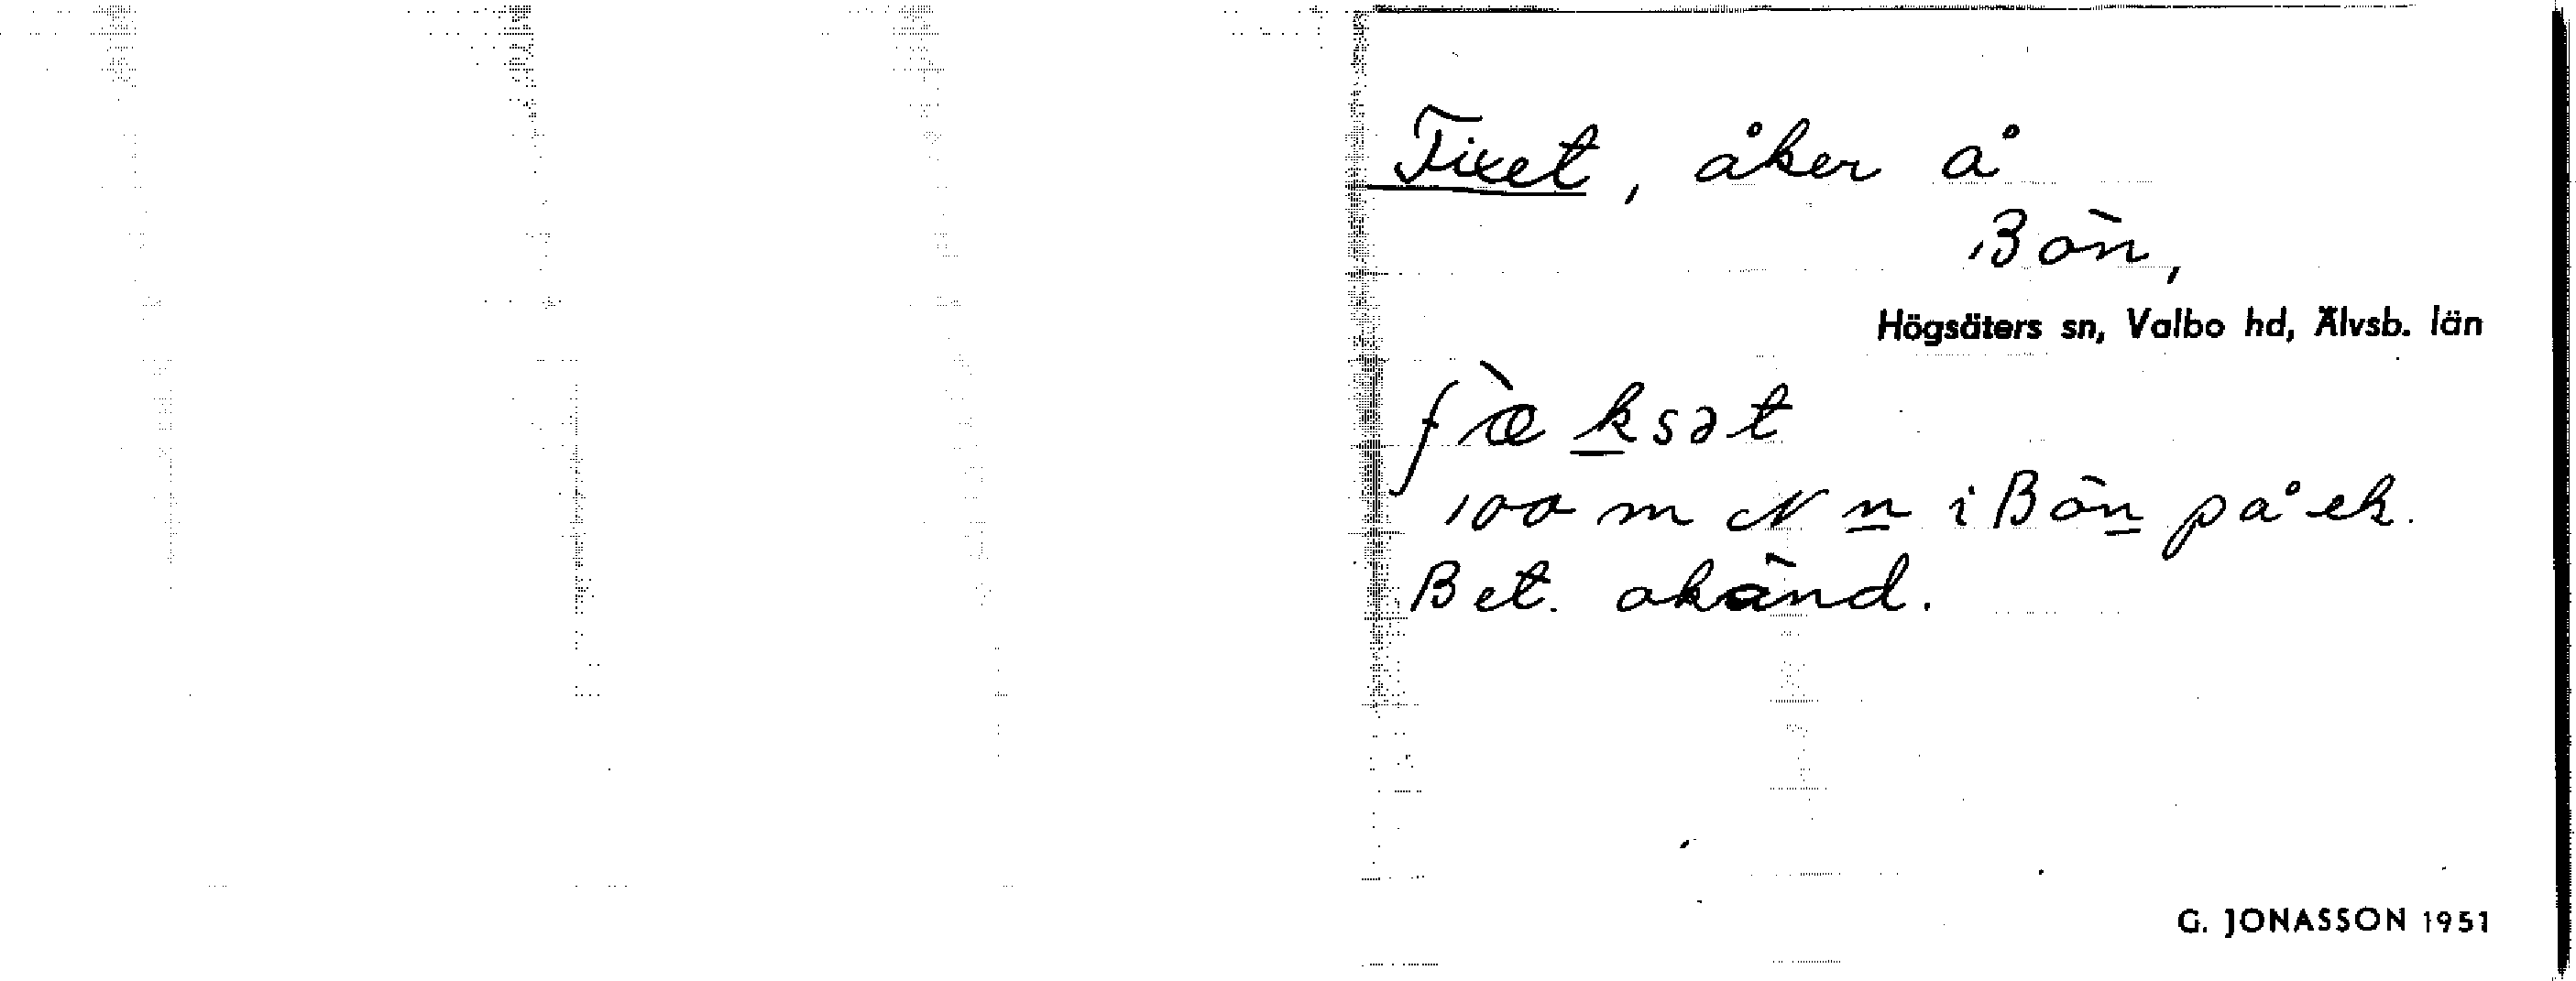 Fixet, åker å
Bön,
Högsäters sn, Valbo hd, Älvsb. län
fæ̀ksət
100 m N n i Bön på ek.
Bet. okänd.
G. JONASSON 1951